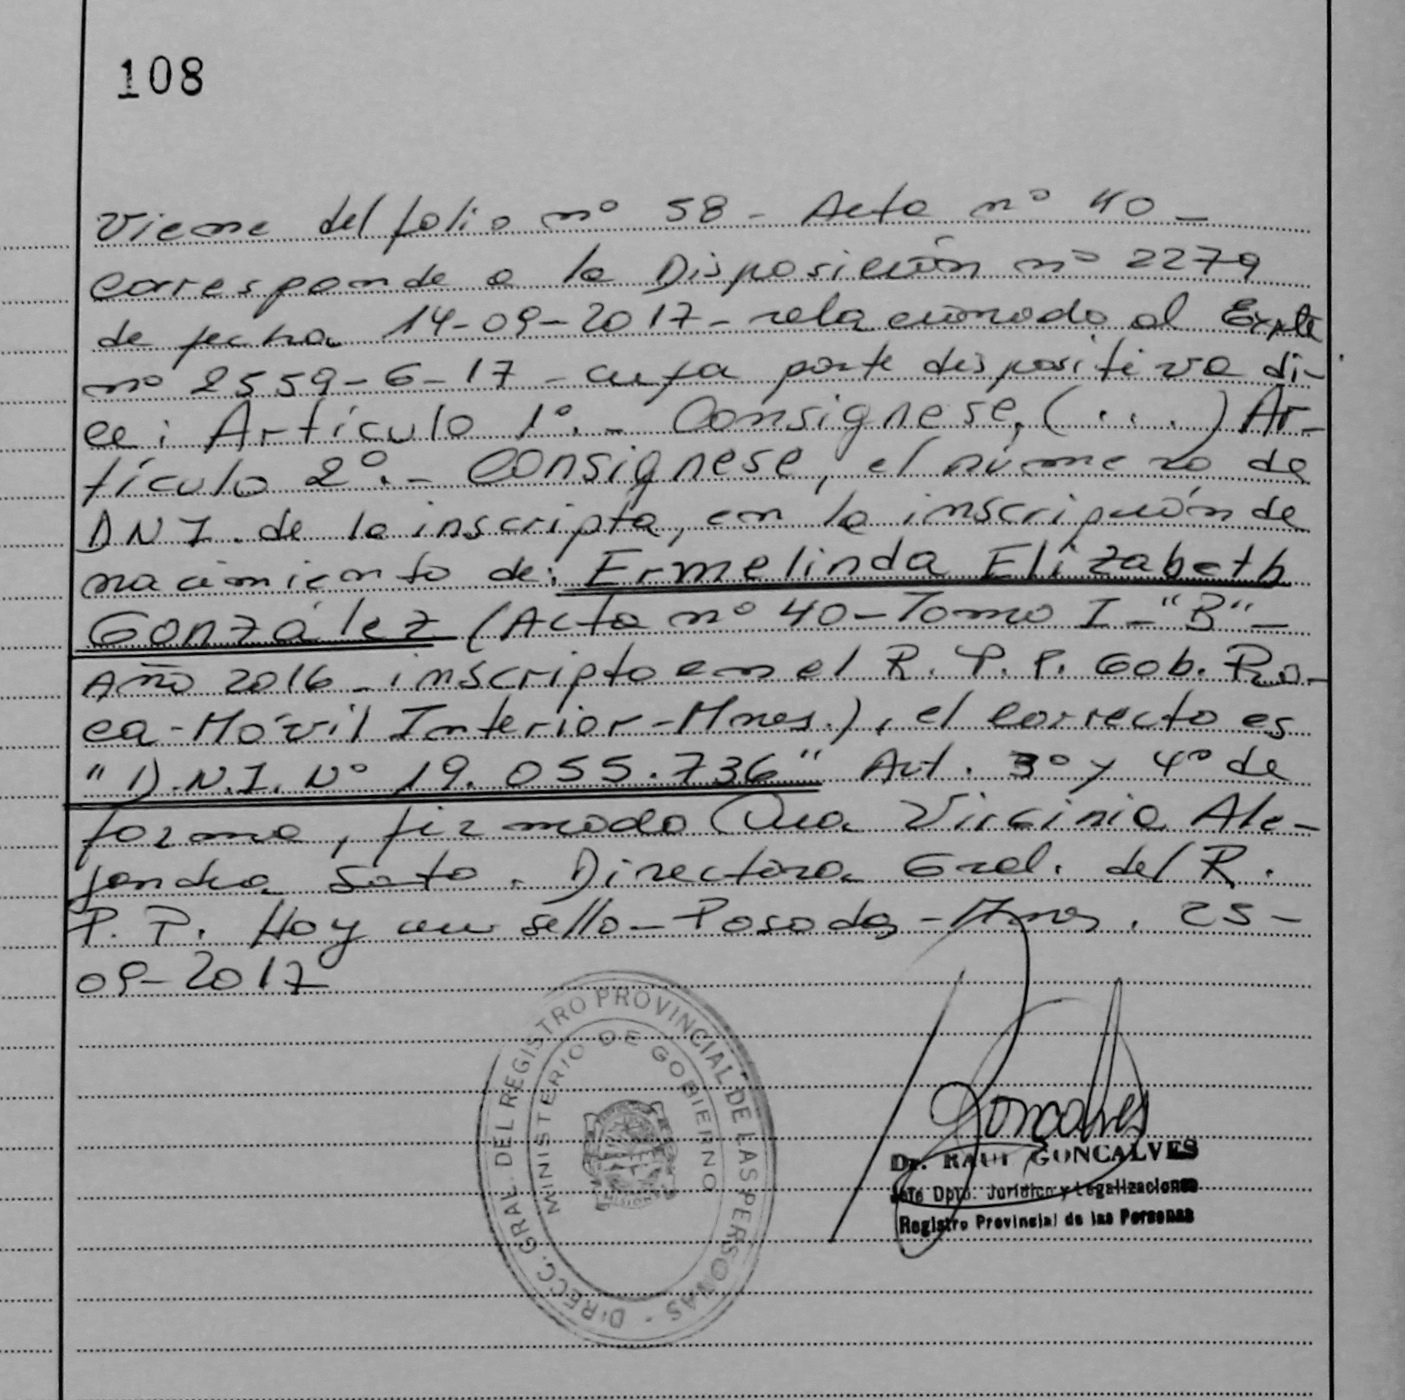 108
Viene del folio nº 58 - Acta nº 40 -
corresponde a la Disposición nº 2279
de fecha 14-09-2017 - relacionado al Expte
nº 2559-6-17 - cuya parte dispositiva di-
ce: Artículo 1º.- Consígnese, (....) Ar-
tículo 2º.- Consígnese, el número de
DNI. de la inscripta, en la inscripción de
nacimiento de: Ermelinda Elizabeth
González (Acta nº 40 - Tomo I - "B" -
Año 2016 - inscripto en el R. P. P. Gob. Ro-
ca - Móvil Interior - Mnes.), el correcto es
"D.N.I. Nº 19.055.736" Art. 3º y 4º de
forma, firmado Dra. Virginia Ale-
jandra Soto. Directora Gral. del R.
P. P. Hoy un sello - Posadas - Mnes. 25-
09-2017
DIRECC. GRAL. DEL REGISTRO PROVINCIAL DE LAS PERSONAS -
MINISTERIO DE GOBIERNO
MISIONES
Goncalves
Dr. RAUL GONCALVES
Jefe Dpto. Jurídico y Legalizaciones
Registro Provincial de las Personas